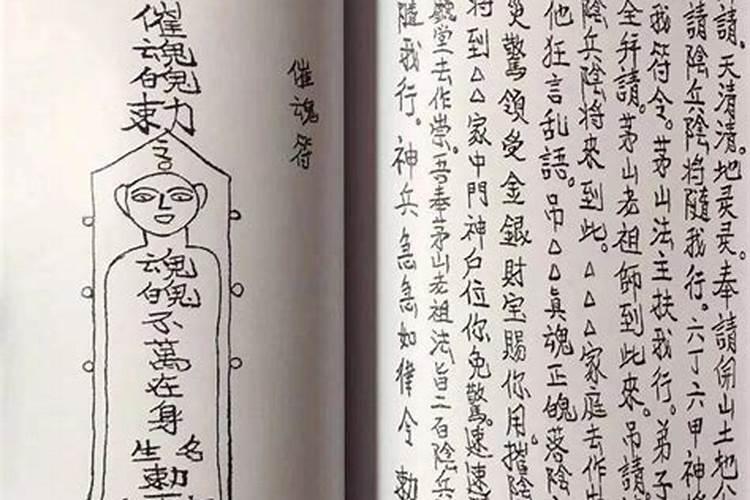 請。天清清。地灵灵。奉請開山土地
請陰兵陰將隨我行。六丁六甲神將
我符令。茅山法主扶我行。弟子
全弁請。茅山老祖師到此來。吊請
陰兵陰將來到此。△△△家庭去作
他狂言乱語。吊△△真魂正魄落陰
災驚領受金銀財宝賜你用。摧陰
将到△△家中門神户位你免驚。速速
堂去作祟。吾奉茅山老祖法旨二百陰兵
隨我行。神兵急急如律令 勅
催魂符
催魂魄勅
魂魄不萬在身
名
生
勅